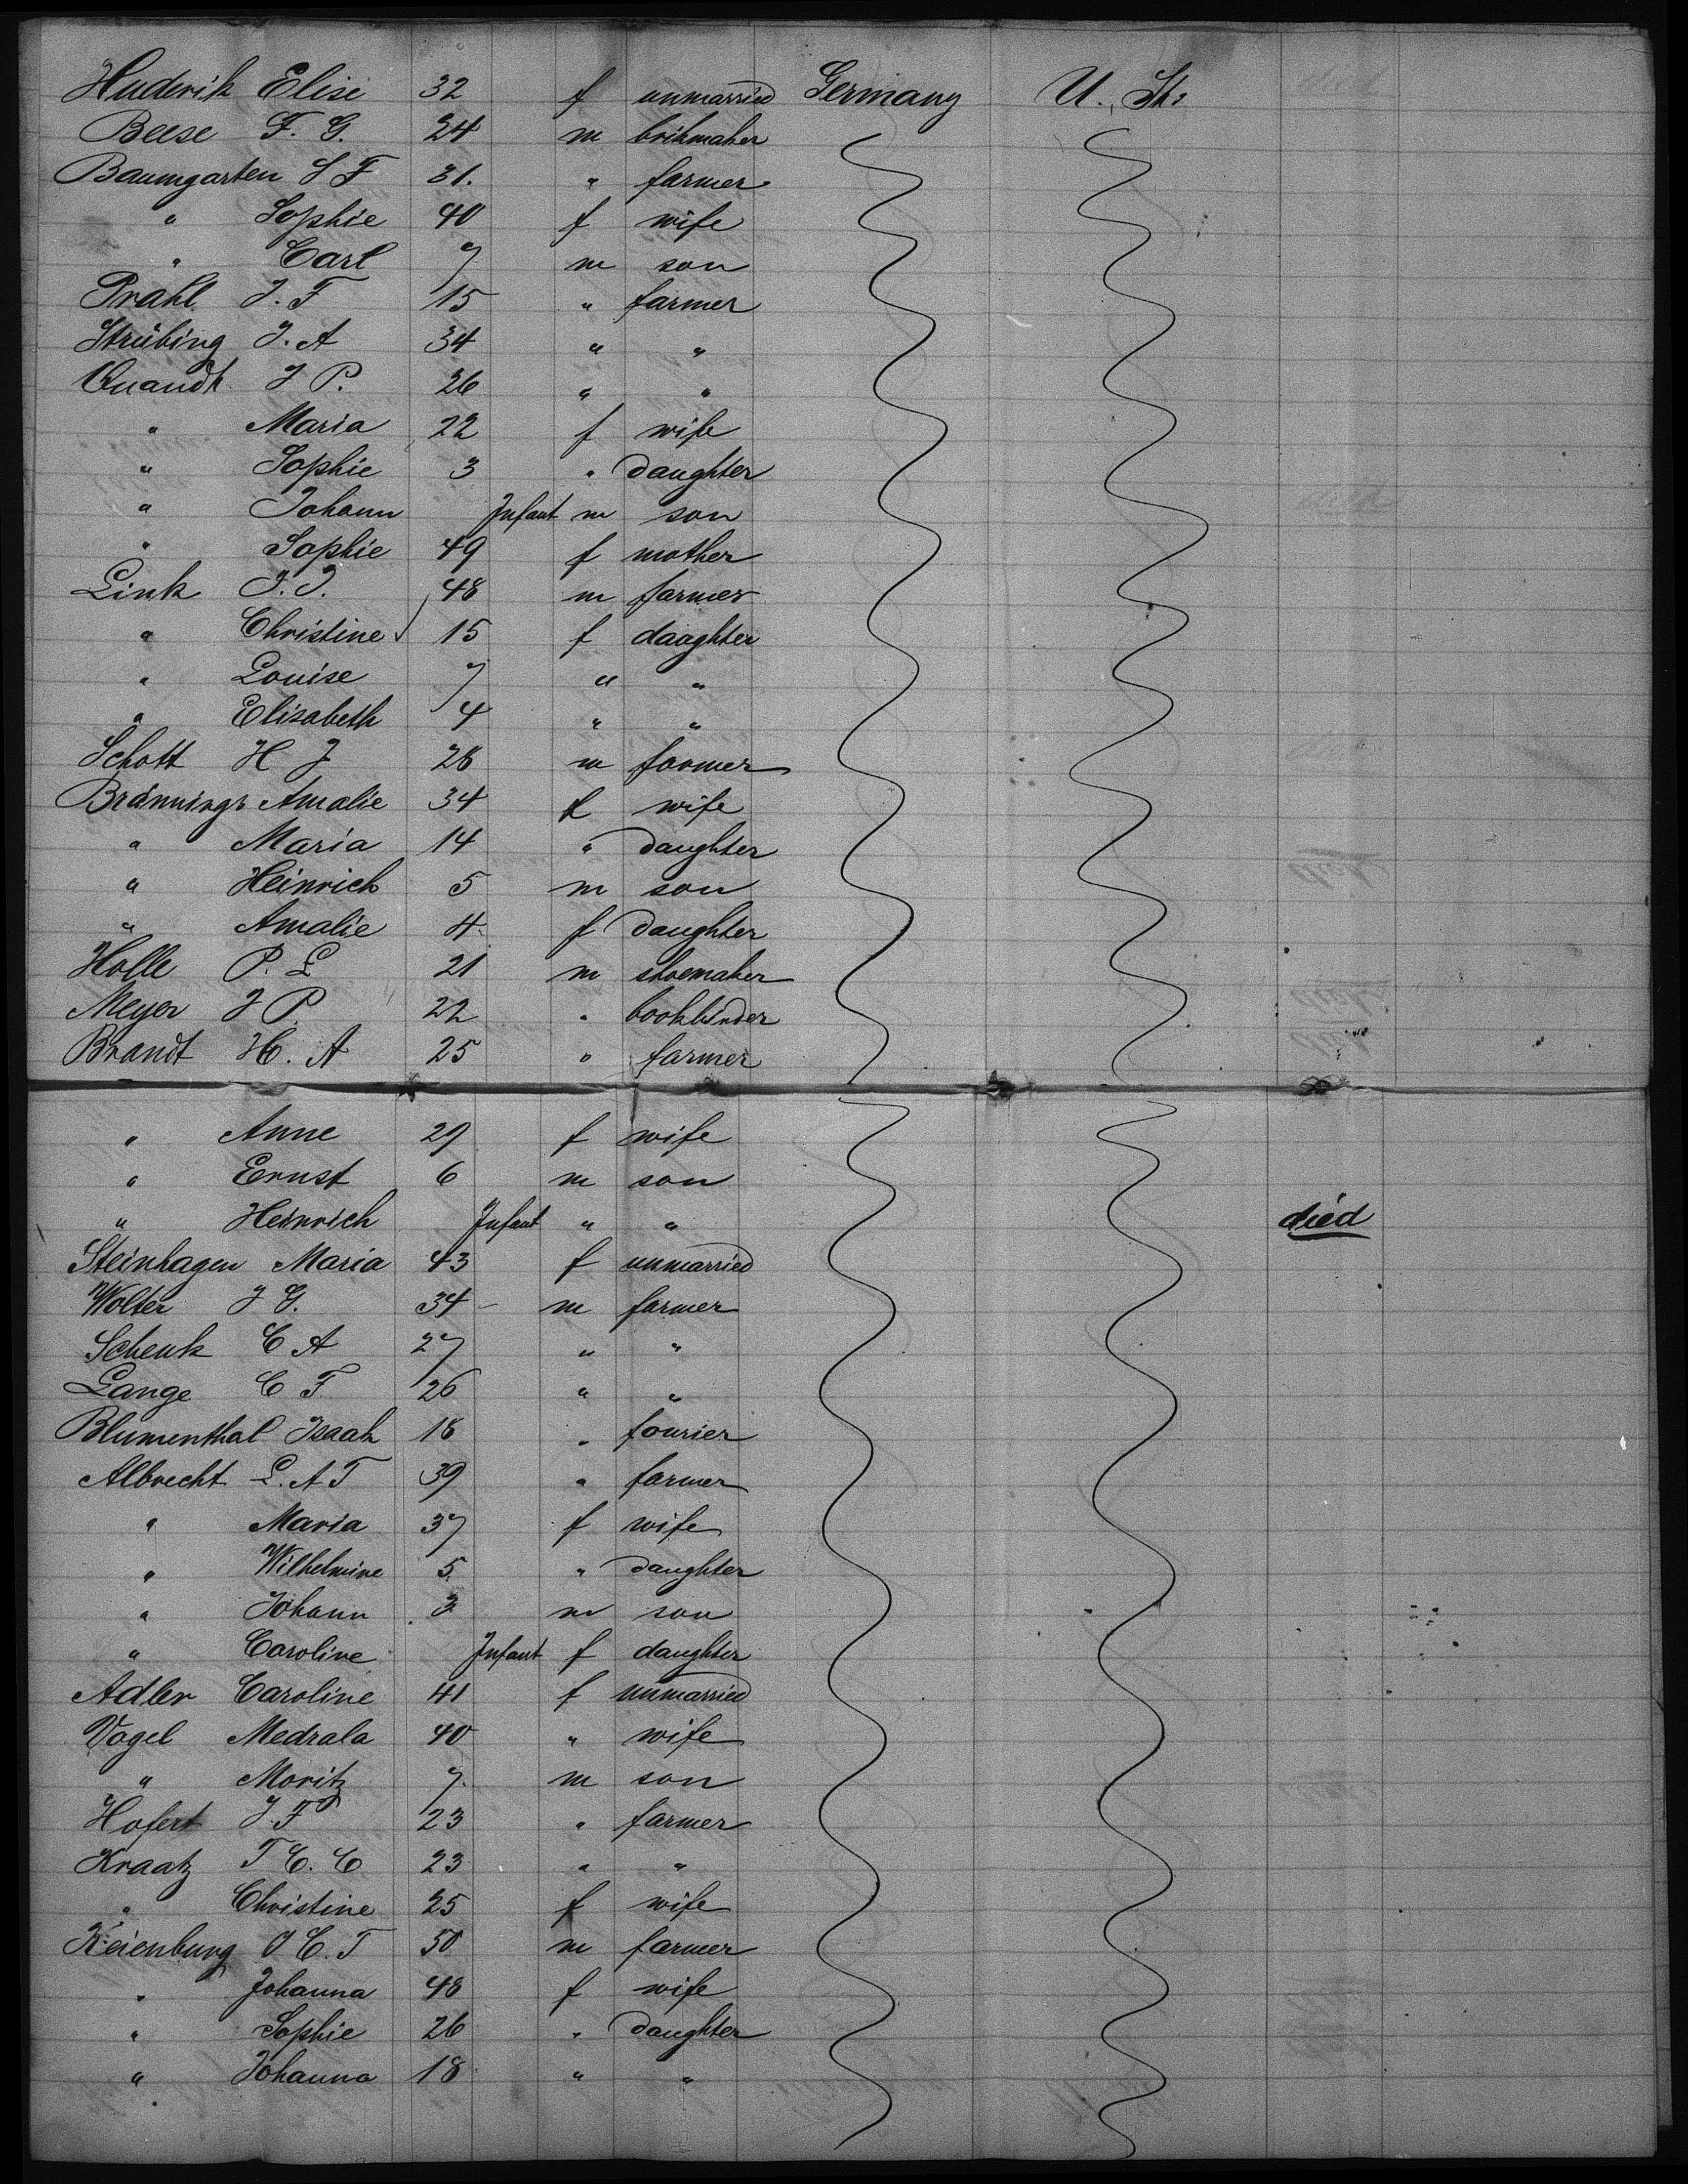 Huderik Elise 32 f unmarried Germany U. St.
Beese F. G. 24 m brikmaker
Baumgarten J F 31. " farmer
" Sophie 40 f wife
" Carl 7 m son
Prahl J. F 15 " farmer
Strübing J. A 34 " "
Quandt J P. 26 " "
" Maria 22 f wife
" Sophie 3 " daughter
" Johann Infant m son
" Sophie 49 f mother
Link J. J. 48 m farmer
" Christine 15 f daughter
" Louise 7 " "
" Elisabeth 4 " "
Schott H J 28 m farmer
Amalie 34 f wife
" Maria 14 " daughter
" Heinrich 5 m son
" Amalie 4 f daughter
Holle P. L 21 m shoemaker
Meyer J P 22 " bookbinder
Brandt H. A 25 " farmer
" Anne 29 f wife
" Ernst 6 m son
" Heinrich Infant " " died
Steinhagen Maria 43 f unmarried
Wolter J G. 34 m farmer
Schenk C A 27 " "
Lange C F 26 " "
Blumenthal Isaak 18 " fourier
Albrecht L. A T 39 " farmer
" Maria 37 f wife
" Wilhelmine 5 " daughter
" Johann 3 m son
" Caroline Infant f daughter
Adler Caroline 41 f unmarried
Vogel Medrala 40 " wife
" Moritz 7. m son
Hofert J. F 23 " farmer
Kraatz T C. C 23 " "
" Christine 25 f wife
Keienburg J C. T 50 m farmer
" Johanna 48 f wife
" Sophie 26 " daughter
" Johanna 18 " "